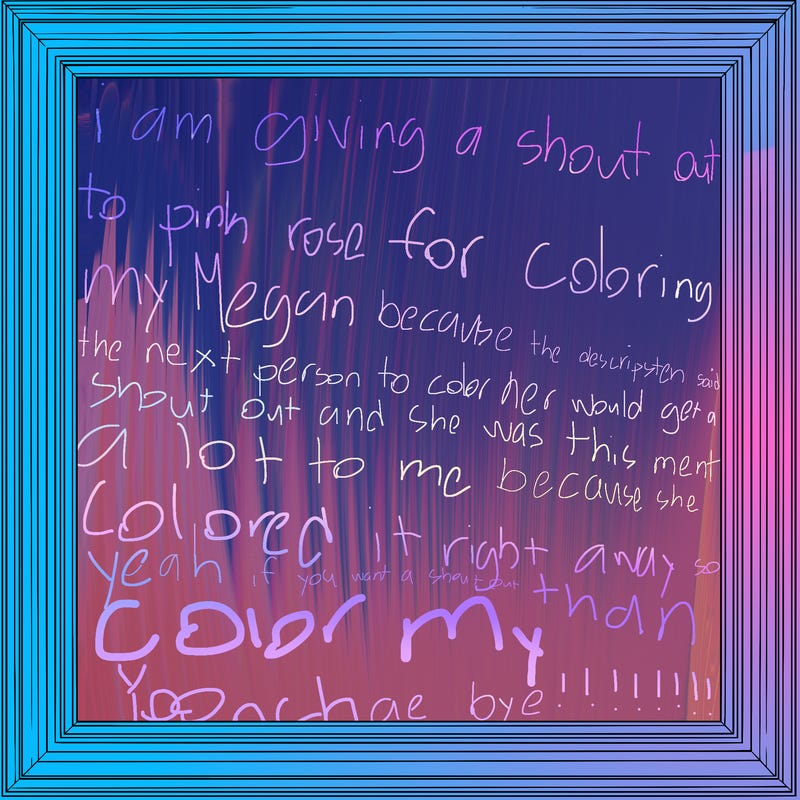 i am giving a shout out
to pink rose for Coloring
my Megan because the descripsten said
the next person to color her would get a
shout out and she was this ment
a lot to me because she
Colored it right away so
yeah if you want a shout out than
Color my
Yoonchae bye!!!!!!!!